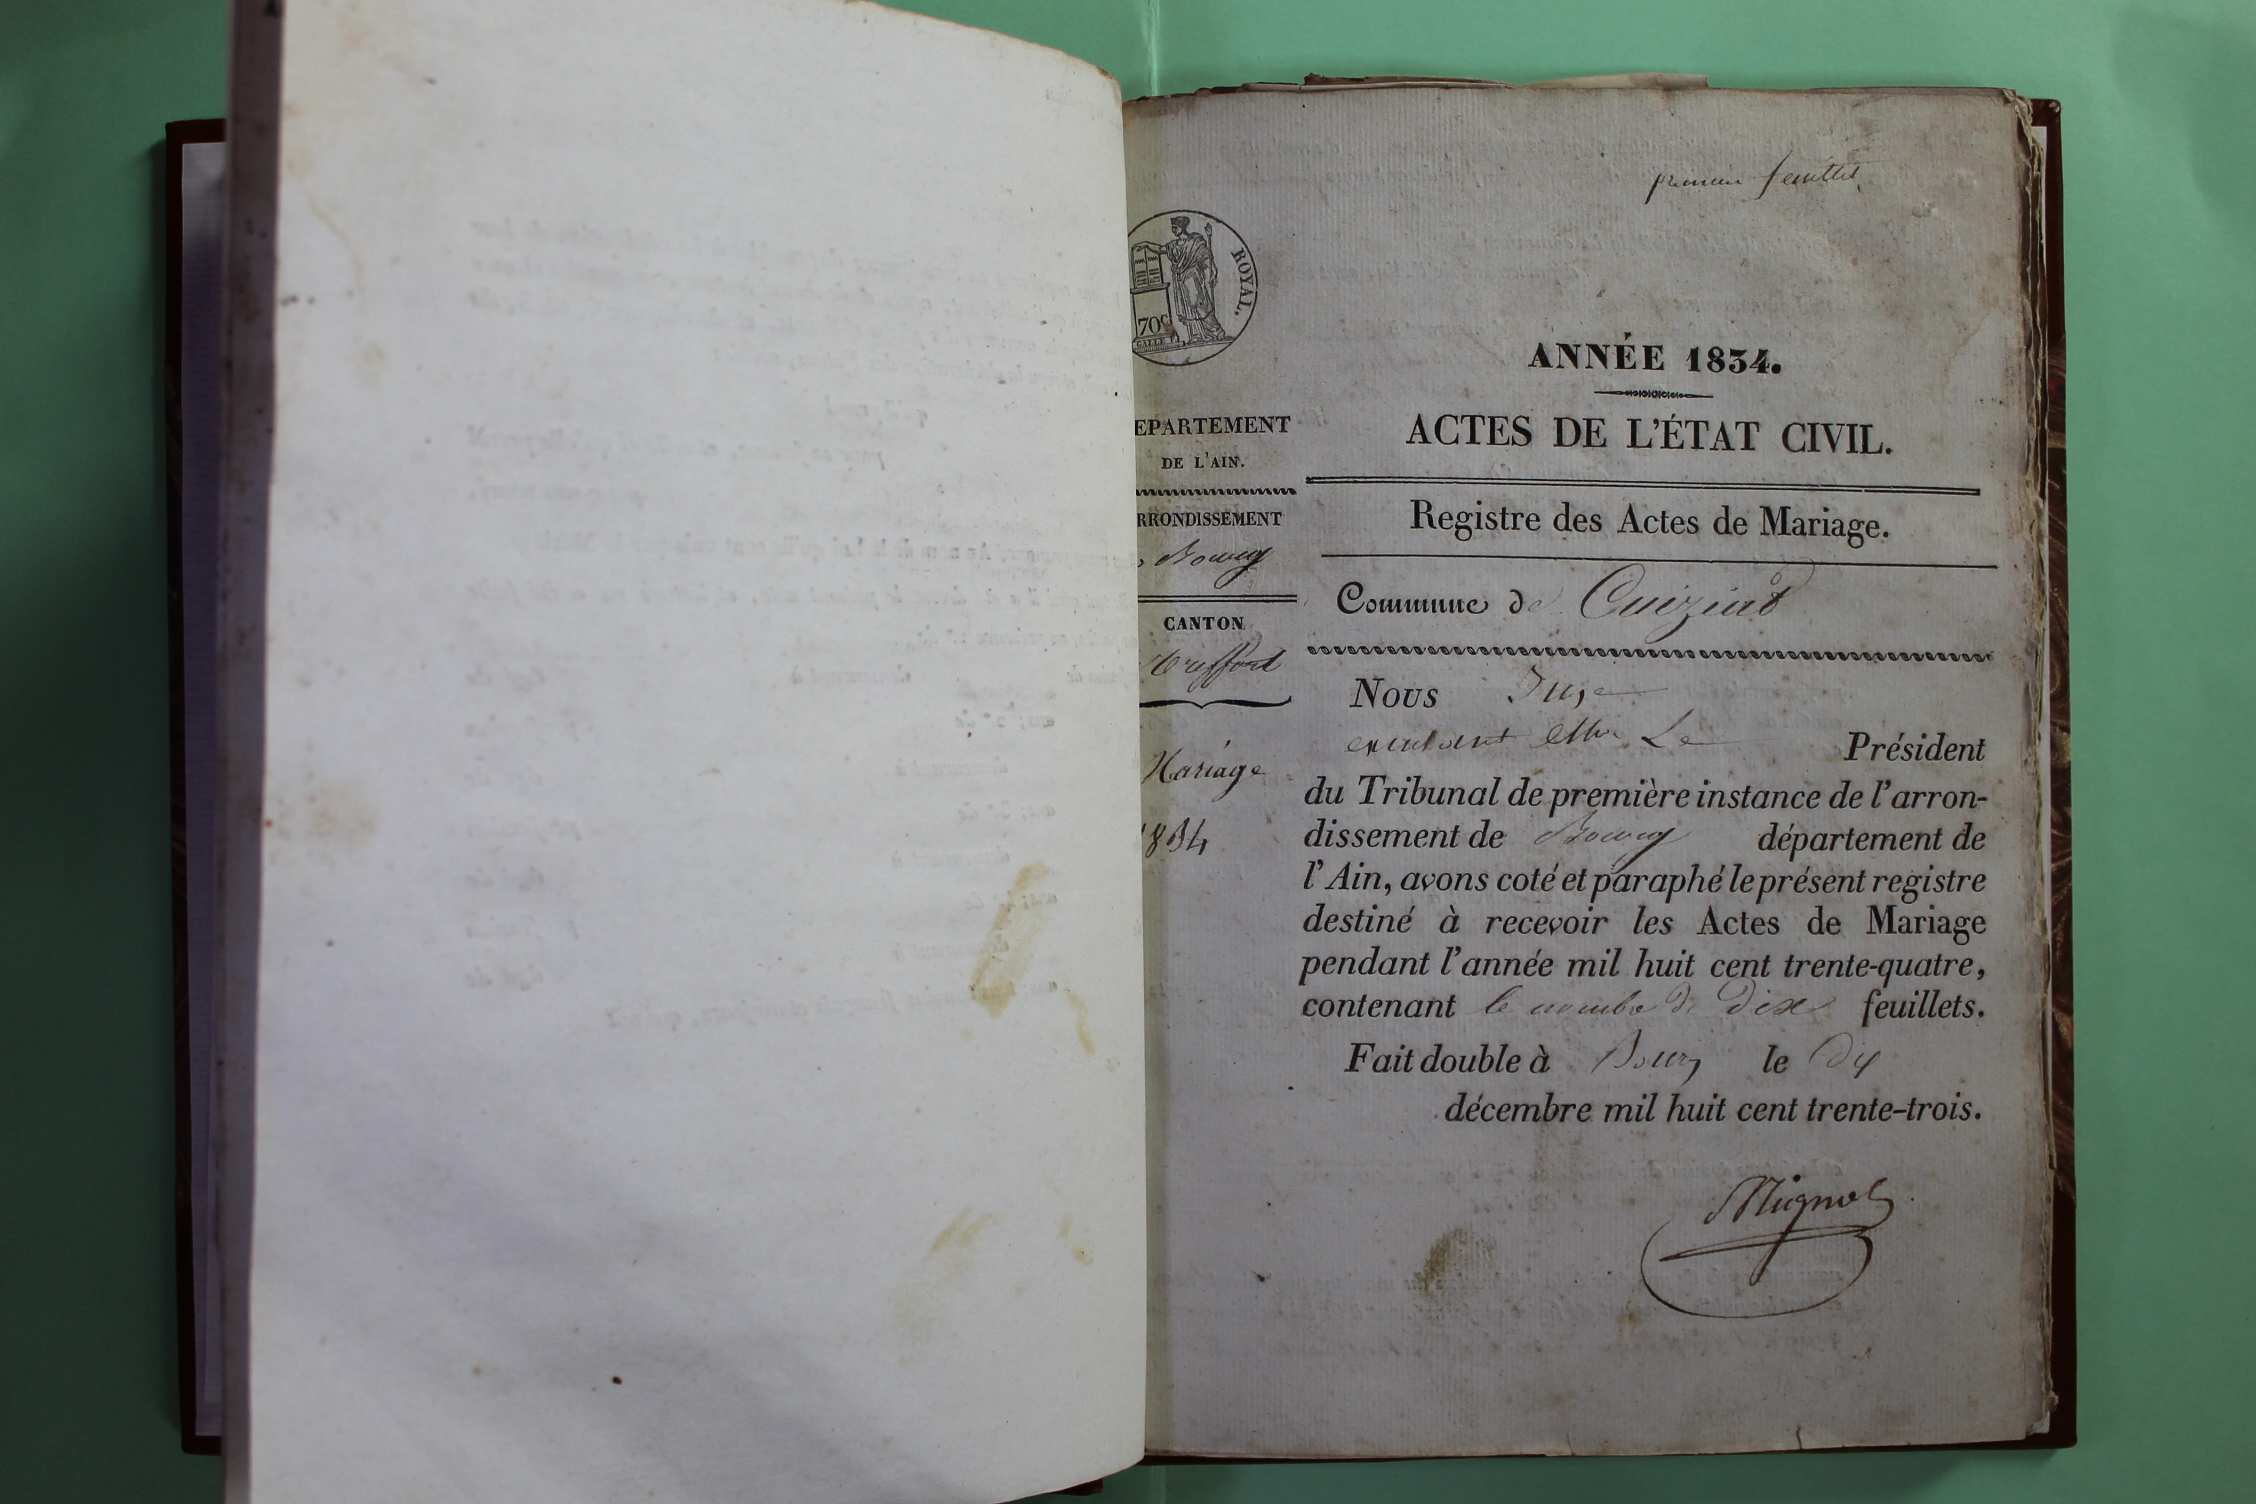 premier feuillet
ROYAL.
70C
ANNÉE 1834.
EPARTEMENT
DE L'AIN.
ACTES DE L'ÉTAT CIVIL.
RRONDISSEMENT
Bourg
Registre des Actes de Mariage.
CANTON
Treffort
Commune de Cuiziat
Mariage
1834
Nous Juge
Le Président
du Tribunal de première instance de l'arron-
dissement de Bourg département de
l'Ain, avons coté et paraphé le présent registre
destiné à recevoir les Actes de Mariage
pendant l'année mil huit cent trente-quatre,
contenant le nombre de dix feuillets.
Fait double à Bourg le dix
décembre mil huit cent trente-trois.
Mignot